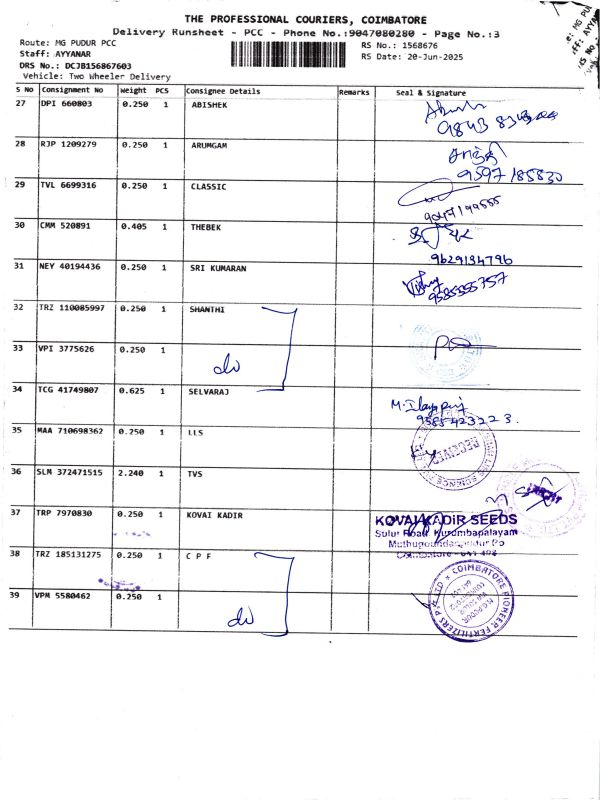 THE PROFESSIONAL COURIERS, COIMBATORE
Delivery Runsheet - PCC - Phone No.:9047080280 - Page No.:3
Route: MG PUDUR PCC
RS No.: 1568676
Staff: AYYANAR
RS Date: 20-Jun-2025
DRS No.: DCJB156867603
Vehicle: Two Wheeler Delivery
S No Consignment No Weight PCS Consignee Details Remarks Seal & Signature
27 DPI 660803 0.250 1 ABISHEK
28 RJP 1209279 0.250 1 ARUMGAM
9597185830
29 TVL 6699316 0.250 1 CLASSIC
9047199555
30 CMM 520891 0.405 1 THEBEK
9629134796
31 NEY 40194436 0.250 1 SRI KUMARAN
9585555757
32 TRZ 110085997 0.250 1 SHANTHI
33 VPI 3775626 0.250 1 do
34 TCG 41749807 0.625 1 SELVARAJ
9585423223.
35 MAA 710698362 0.250 1 LLS
RECEIVED
36 SLM 372471515 2.240 1 TVS
37 TRP 7970830 0.250 1 KOVAI KADIR
KOVAI KADIR SEEDS
Sulur Road, Kurumbapalayam
Coimbatore
38 TRZ 185131275 0.250 1 C P F
39 VPM 5580462 0.250 1 do
COIMBATORE PIONEER FERTILIZERS PVT LTD